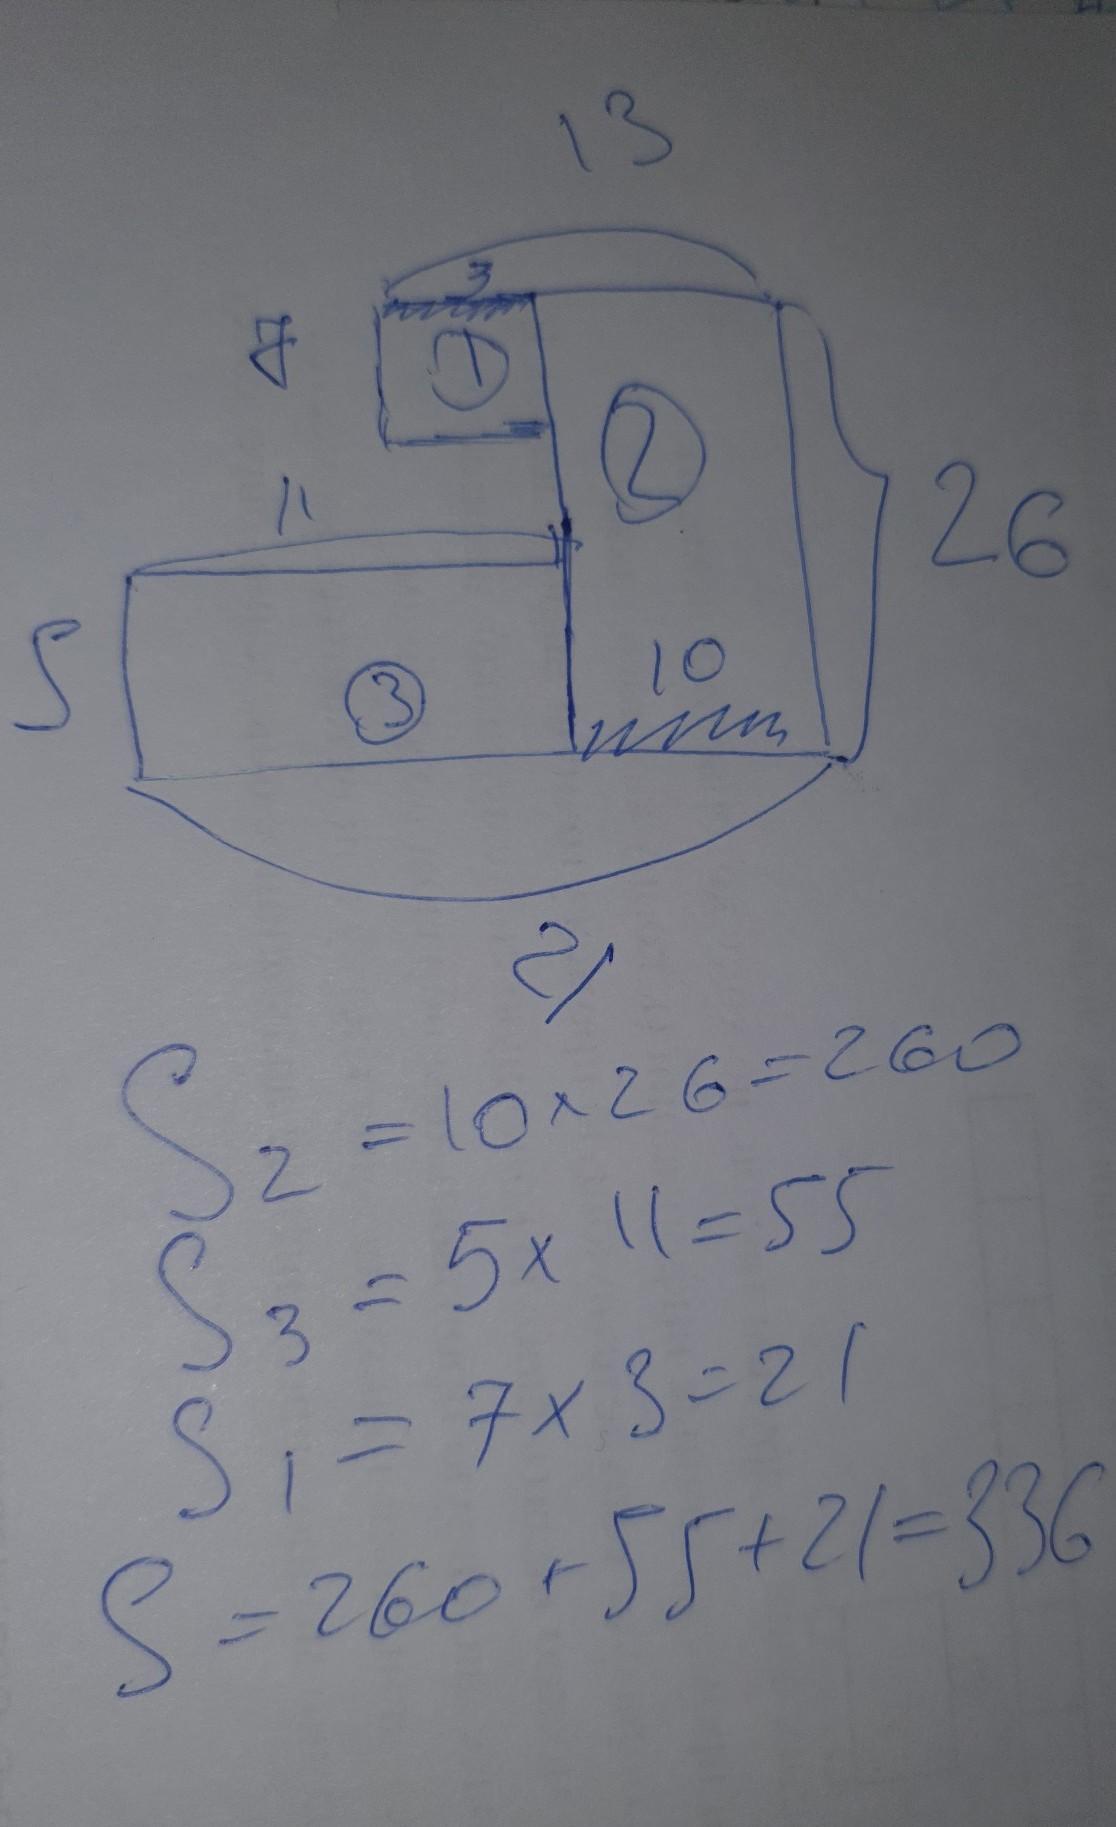 13
3
7
1
2
11
26
5
10
3
21
S2 = 10 × 26 = 260
S3 = 5 × 11 = 55
S1 = 7 × 3 = 21
S = 260 + 55 + 21 = 336